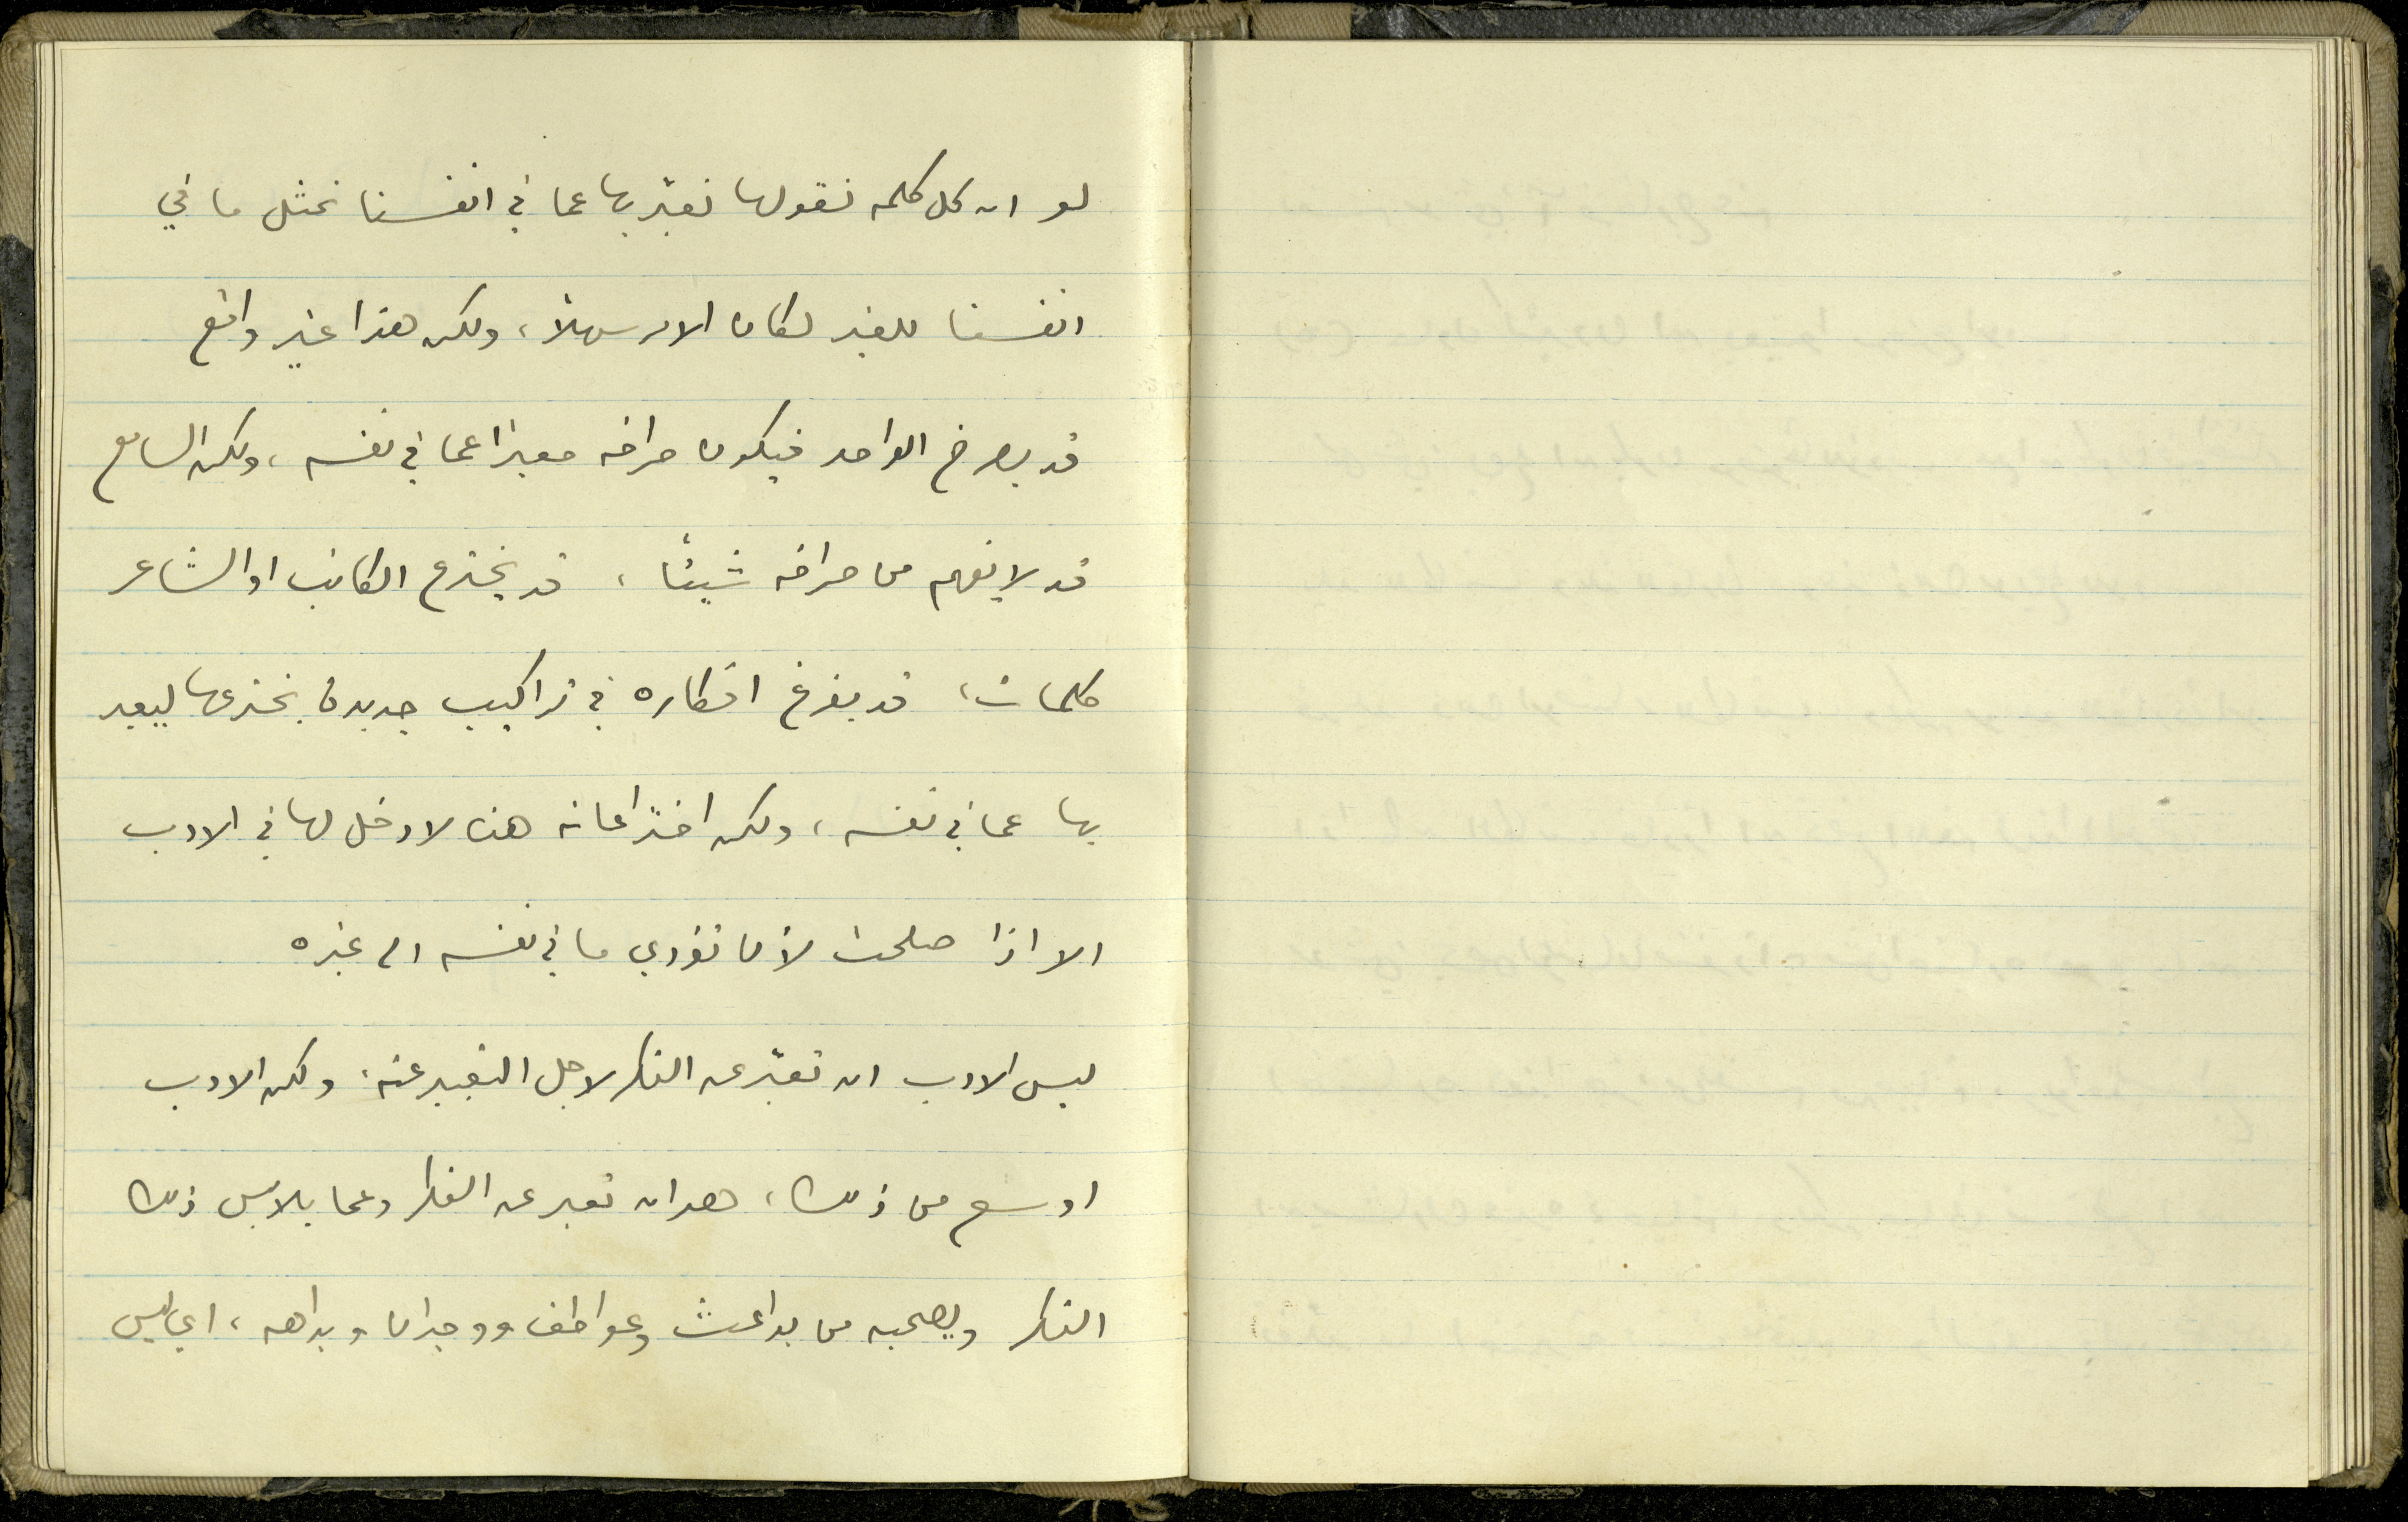 لو ان كل كلمه نقولها نعبّر بها عما في انفسنا تمثل ما في
انفسنا للغير لكان الامر سهلاً، ولكن هذا غير واقع
قد يصرخ الواحد فيكون صراخه معبرا عما في نفسه، ولكن السامع
قد لا يفهم من صراخه شيئاً، قد يخترع الكاتب او الشاعر
كلمات، قد يفرغ افكاره في تراكيب جديدة يخترعها ليعبر
بها عما في نفسه، ولكن اختراعاته هذه لا دخل لها في الادب
الا اذا صلحت لأن تؤدي ما في نفسه الى غيره
ليس الادب ان تعبّر عن الفكر لاجل التعبير عنه، ولكن الادب
اوسع من ذلك، هو ان تعبر عن الفكر وعما يلابس ذلك
الفكر ويصحبه من بواعث وعواطف ووجدان وبداهه، اي ليس